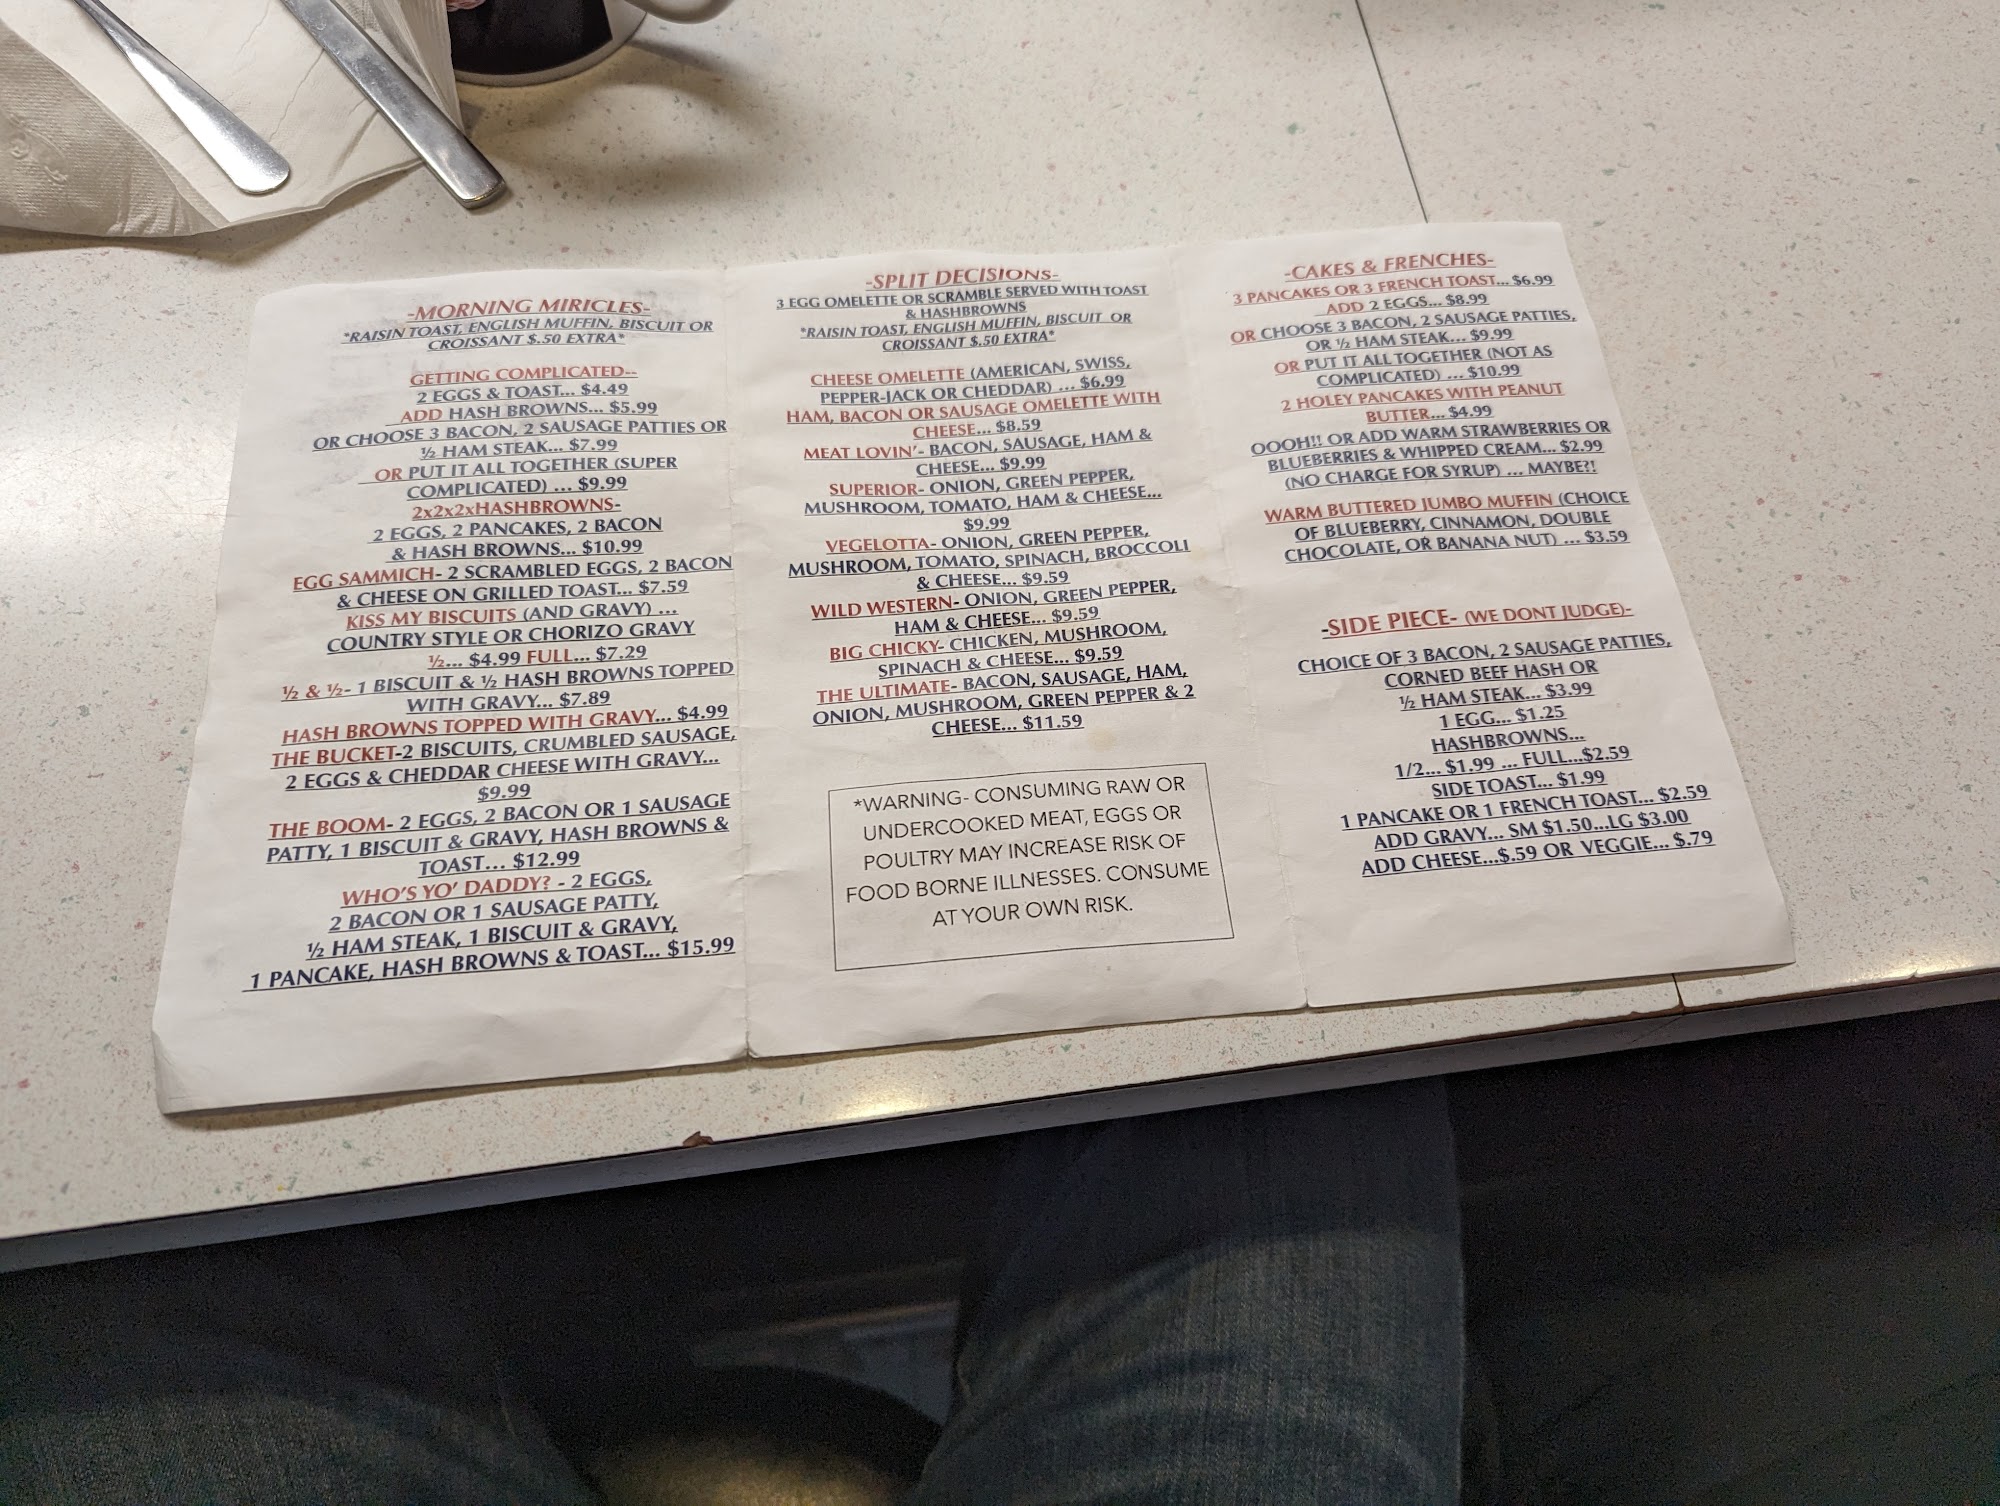 -MORNING MIRICLES-
*RAISIN TOAST, ENGLISH MUFFIN, BISCUIT OR
CROISSANT $.50 EXTRA*
GETTING COMPLICATED--
2 EGGS & TOAST... $4.49
ADD HASH BROWNS... $5.99
OR CHOOSE 3 BACON, 2 SAUSAGE PATTIES OR
½ HAM STEAK... $7.99
OR PUT IT ALL TOGETHER (SUPER
COMPLICATED) ... $9.99
2x2x2xHASHBROWNS-
2 EGGS, 2 PANCAKES, 2 BACON
& HASH BROWNS... $10.99
EGG SAMMICH- 2 SCRAMBLED EGGS, 2 BACON
& CHEESE ON GRILLED TOAST... $7.59
KISS MY BISCUITS (AND GRAVY) ...
COUNTRY STYLE OR CHORIZO GRAVY
½... $4.99 FULL... $7.29
½ & ½- 1 BISCUIT & ½ HASH BROWNS TOPPED
WITH GRAVY... $7.89
HASH BROWNS TOPPED WITH GRAVY... $4.99
THE BUCKET-2 BISCUITS, CRUMBLED SAUSAGE,
2 EGGS & CHEDDAR CHEESE WITH GRAVY...
$9.99
THE BOOM- 2 EGGS, 2 BACON OR 1 SAUSAGE
PATTY, 1 BISCUIT & GRAVY, HASH BROWNS &
TOAST... $12.99
WHO'S YO' DADDY? - 2 EGGS,
2 BACON OR 1 SAUSAGE PATTY,
½ HAM STEAK, 1 BISCUIT & GRAVY,
1 PANCAKE, HASH BROWNS & TOAST... $15.99
-SPLIT DECISIONS-
3 EGG OMELETTE OR SCRAMBLE SERVED WITH TOAST
& HASHBROWNS
*RAISIN TOAST, ENGLISH MUFFIN, BISCUIT OR
CROISSANT $.50 EXTRA*
CHEESE OMELETTE (AMERICAN, SWISS,
PEPPER-JACK OR CHEDDAR) ... $6.99
HAM, BACON OR SAUSAGE OMELETTE WITH
CHEESE... $8.59
MEAT LOVIN'- BACON, SAUSAGE, HAM &
CHEESE... $9.99
SUPERIOR- ONION, GREEN PEPPER,
MUSHROOM, TOMATO, HAM & CHEESE...
$9.99
VEGELOTTA- ONION, GREEN PEPPER,
MUSHROOM, TOMATO, SPINACH, BROCCOLI
& CHEESE... $9.59
WILD WESTERN- ONION, GREEN PEPPER,
HAM & CHEESE... $9.59
BIG CHICKY- CHICKEN, MUSHROOM,
SPINACH & CHEESE... $9.59
THE ULTIMATE- BACON, SAUSAGE, HAM,
ONION, MUSHROOM, GREEN PEPPER & 2
CHEESE... $11.59
*WARNING- CONSUMING RAW OR
UNDERCOOKED MEAT, EGGS OR
POULTRY MAY INCREASE RISK OF
FOOD BORNE ILLNESSES. CONSUME
AT YOUR OWN RISK.
-CAKES & FRENCHES-
3 PANCAKES OR 3 FRENCH TOAST... $6.99
ADD 2 EGGS... $8.99
OR CHOOSE 3 BACON, 2 SAUSAGE PATTIES,
OR ½ HAM STEAK... $9.99
OR PUT IT ALL TOGETHER (NOT AS
COMPLICATED) ... $10.99
2 HOLEY PANCAKES WITH PEANUT
BUTTER... $4.99
OOOH!! OR ADD WARM STRAWBERRIES OR
BLUEBERRIES & WHIPPED CREAM... $2.99
(NO CHARGE FOR SYRUP) ... MAYBE?!
WARM BUTTERED JUMBO MUFFIN (CHOICE
OF BLUEBERRY, CINNAMON, DOUBLE
CHOCOLATE, OR BANANA NUT) ... $3.59
-SIDE PIECE- (WE DONT JUDGE)-
CHOICE OF 3 BACON, 2 SAUSAGE PATTIES,
CORNED BEEF HASH OR
½ HAM STEAK... $3.99
1 EGG... $1.25
HASHBROWNS...
1/2... $1.99 ... FULL...$2.59
SIDE TOAST... $1.99
1 PANCAKE OR 1 FRENCH TOAST... $2.59
ADD GRAVY... SM $1.50...LG $3.00
ADD CHEESE...$.59 OR VEGGIE... $.79